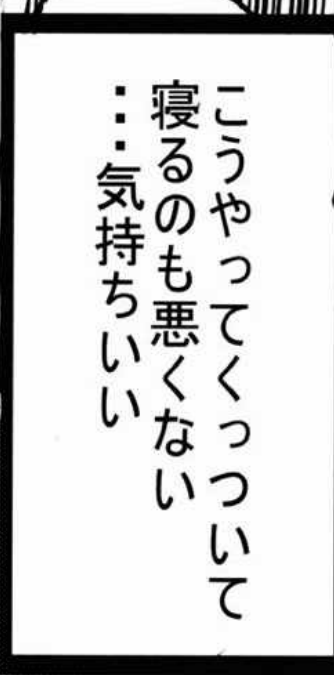 こうやってくっついて
寝るのも悪くない
…気持ちいい